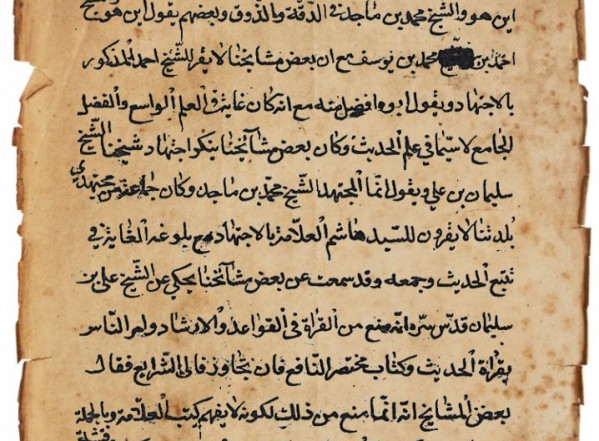 ابن هو والشيخ محمد بن ماجد في الدقة والذوق وبعضهم يقول ابن هو ج
احمد بن محمد بن يوسف مع ان بعض مشايخنا لا يقر للشيخ احمد المذكور
بالاجتهاد ويقول ابوه افضل منه مع انه كان غاية في العلم الواسع والفضل
الجامع لاسيما في علم الحديث وكان بعض مشايخنا ينكر اجتهاد شيخنا الشيخ
سليمان بن علي ويقول انما المجتهد الشيخ محمد بن ماجد وكان جماعة من مجتهدي
بلدتنا لا يقرون للسيد هاشم العلامة بالاجتهاد مع بلوغه الغاية في
تتبع الحديث وجمعه وقد سمعت عن بعض مشايخنا يحكي عن الشيخ علي بن
سليمان قدس سره انه منع من القراة في القواعد والارشاد وامر الناس
بقراة الحديث وكتاب مختصر النافع فان تجاوز فالى الشرايع فقال
بعض المشايخ انه انما منع من ذلك لكونه لا يفهم كتب العلامة وبالجلة